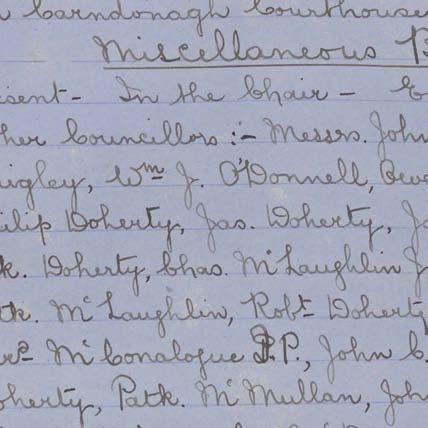 Carndonagh Courthouse
Miscellaneous B
esent - In the Chair - E
her Councillors :- Messrs. John
uigley, Wm J. O'Donnell,
ilip Doherty, Jas. Doherty, Jo
k. Doherty, Chas. McLaughlin J
tk. McLaughlin, Robt Doherty
McConalogue J.P., John C.
oherty, Patk. McMullan, Joh